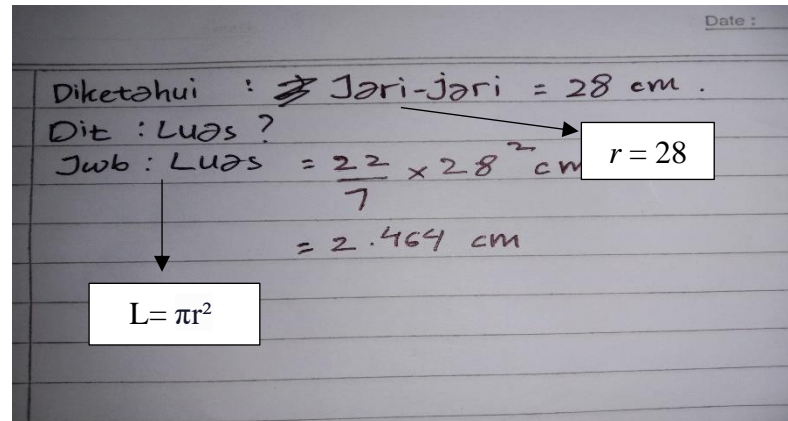 Date :
Diketahui : Jari-jari = 28 cm .
Dit : Luas ?
r = 28
Jwb : Luas = 22/7 × 28² cm
= 2.464 cm
L= πr²